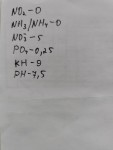 NO2-0
NH3/NH4-0
NO3-5
PO4-0,25
KH-9
PH-7,5